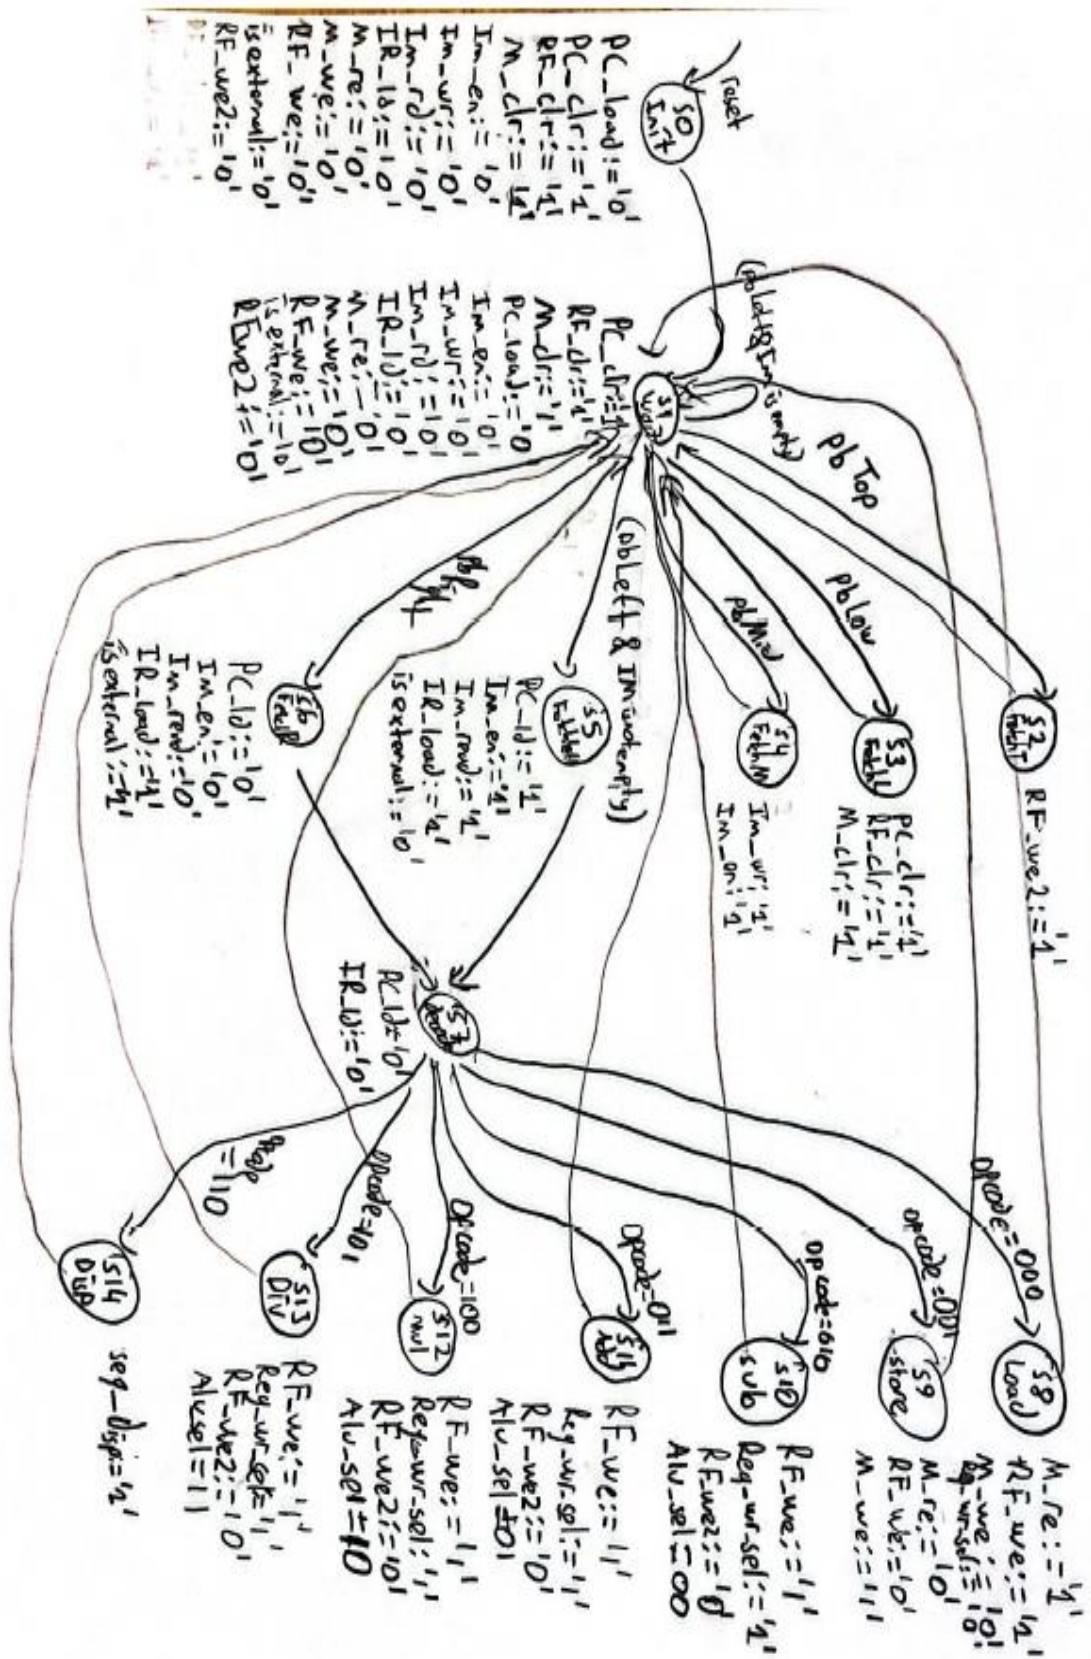 reset
S0
Init
PC_load:='0'
PC_clr:='1'
RF_clr:='1'
M_clr:='1'
Im_en:='0'
Im_wr:='0'
Im_rd:='0'
IR_ld:='0'
M_re:='0'
M_we:='0'
RF_we:='0'
isexternal:='0'
RF_we2:='0'
(pbLeft&Im=isempty)
S1
wait
PC_clr:='1'
RF_clr:='1'
M_clr:='1'
PC_load:='0'
Im_en:='0'
Im_wr:='0'
Im_rd:='0'
IR_ld:='0'
M_re:='0'
M_we:='0'
RF_we:='0'
isexternal:='0'
RF_we2:='0'
pbTop
pbLow
pbMid
(pbLeft & Im=notempty)
pbRight
S2
FetchT
RF_we2:='1'
S3
FetchL
PC_clr:='1'
RF_clr:='1'
M_clr:='1'
S4
FetchM
Im_wr:'1'
Im_en:'1'
S5
PC_ld:='1'
Im_en:='1'
Im_read:='1'
IR_load:='1'
isexternal:='0'
S6
PC_ld:='0'
Im_en:='0'
Im_read:='0'
IR_load:='1'
isexternal:='1'
S7
decode
PC_ld='0'
IR_ld:='0'
Opcode=000
Opcode=001
Opcode=010
Opcode=011
Opcode=100
Opcode=101
=110
S8
Load
M_re:='1'
RF_we:='1'
M_we:='0'
Reg_wr_sel:='0'
S9
store
M_re:='0'
RF_we:='0'
M_we:='1'
S10
sub
RF_we:='1'
Reg_wr_sel:='1'
RF_we2:='0'
Alu_sel=00
S11
Add
RF_we:='1'
Reg_wr_sel:='1'
RF_we2:='0'
Alu_sel=01
S12
mul
RF_we:='1'
Reg_wr_sel:'1'
RF_we2:='0'
Alu_sel=10
S13
Div
RF_we:='1'
Reg_wr_sel='1'
RF_we2:='0'
Alusel=11
S14
Disp
seg_Disp:='1'